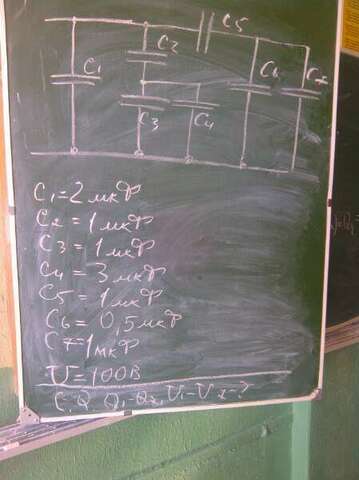 C5
C2
C1 C6 C7
C3 C4
C1=2мкФ
C2=1мкФ
C3=1мкФ
C4=3мкФ
C5=1мкФ
C6=0,5мкФ
C7=1мкФ
U=100В
C, Q, Q1-Q7, U1-U7-?